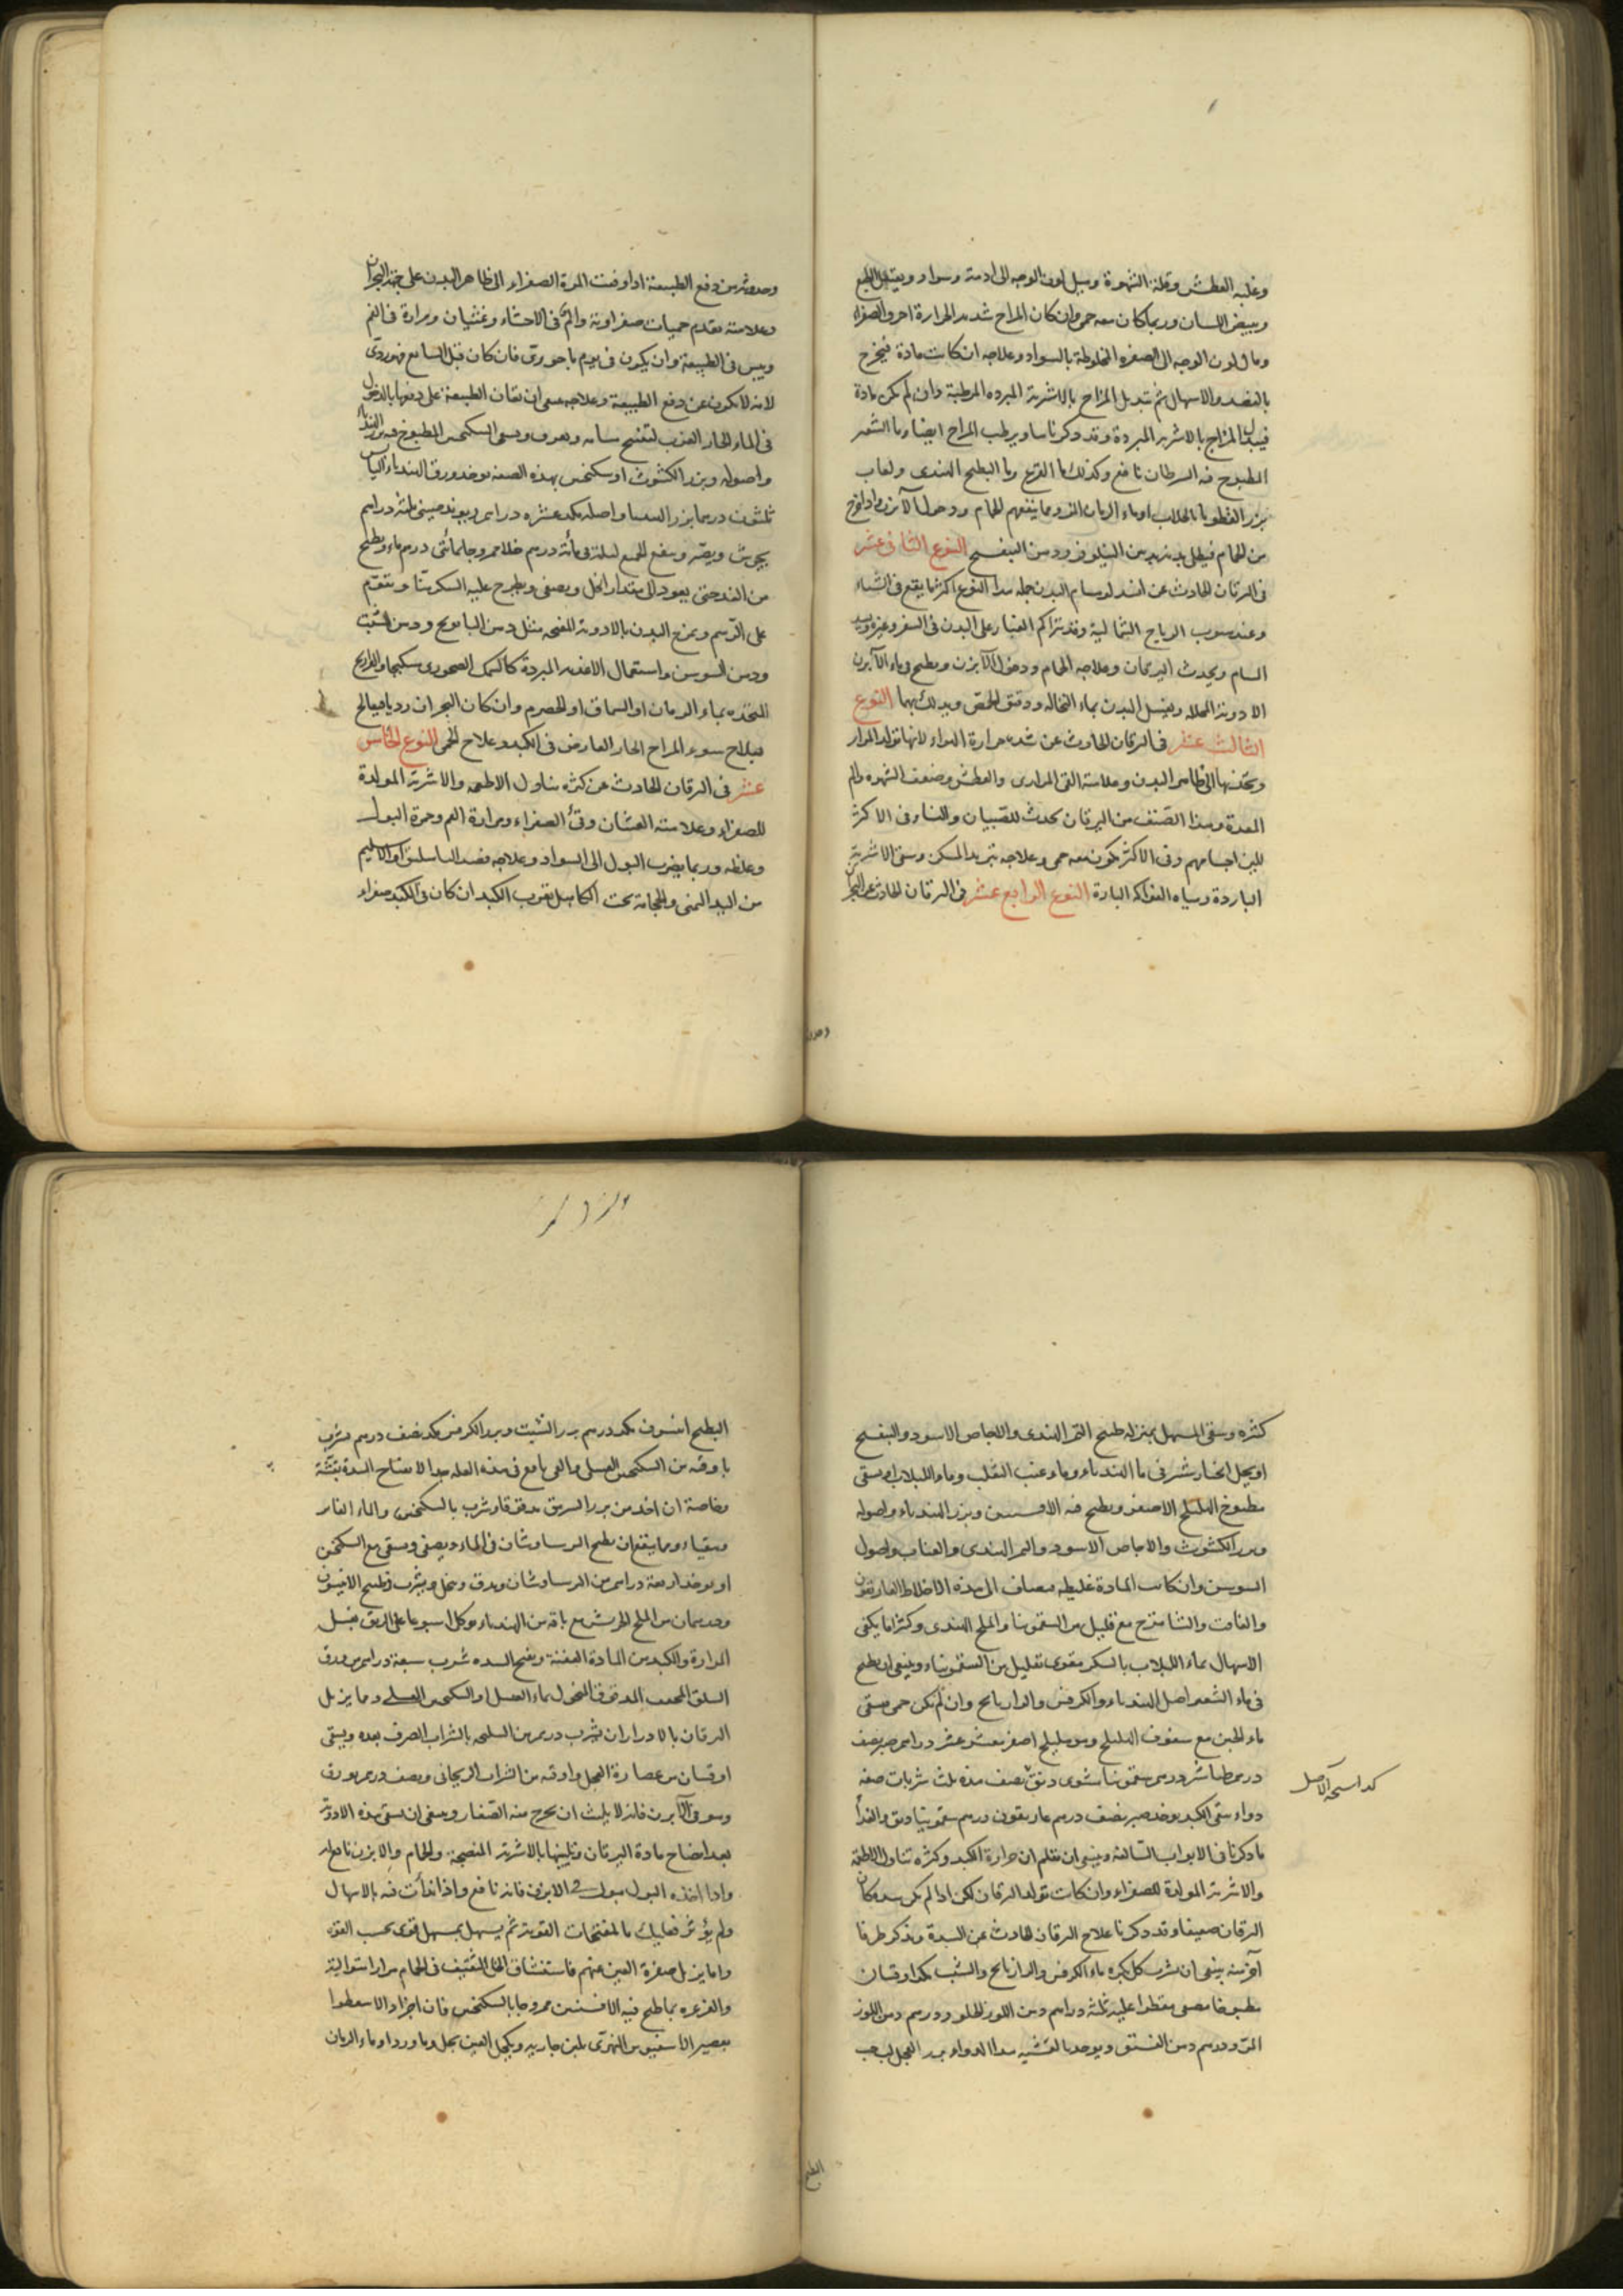 وغلبه العطش وقلة الشهوة وميل لون الوجه الى ادمة وسواد ويعتقل الطبع
ويبيض اللسان وربما كان معه حمى وان كان المزاج شديد الحرارة احر والصفراء
ومال لون الوجه الى الصفره المخلوطة بالسواد وعلاجه ان كانت مادة فيخرج
بالفصد والاسهال ثم تبديل المزاج بالاشربة المبرده المرطبة وان لم يكن مادة
فيبدل المزاج بالاشربه المبردة وقد ذكرناها ويرطب المزاج ايضا وماء الشعير
المطبوخ فيه السرطان نافع وكذلك ماء القرع وماء البطيخ الهندى ولعاب
بزر القطونا بالجلاب او ماء الرمان المز ومما ينفعهم الحمام ودخول الآبزن واذا خرج
من الحمام فيطلى بدنه بدهن النيلوفر ودهن البنفسج النوع الثانى عشر
فى اليرقان الحادث عن انسداد مسام البدن جمله هذا النوع اكثر ما يقع فى الشتاء
وعند هبوب الرياح الشمالية وقد يتراكم الغبار على البدن فى السفر وغيره ويسد
المسام ويحدث اليرقان وعلاجه الحمام ودخول الآبزن ويطبخ فى ماء الآبزن
الادوية المحلله ويغسل البدن بماء النخاله ودقيق الحمص ويدلك بهما النوع
الثالث عشر فى اليرقان الحادث عن شده حرارة الهواء لانها تولد المرار
وتجذبها الى ظاهر البدن وعلامته القئ المرارى والعطش وضعف الشهوه والم
المعدة وهذا الصنف من اليرقان يحدث للصبيان والنساء فى الاكثر
للين اجسامهم وفى الاكثر يكون معه حمى وعلاجه تبريد المسكن وسقى الاشربة
الباردة ومياه الفواكه الباردة النوع الرابع عشر فى اليرقان الحادث عن البحران
وحدوثه
وحدوثه من دفع الطبيعة اذا دفعت المرة الصفراء الى ظاهر البدن على جهة البحران
وعلامته تقدم حميات صفراوية والم فى الاحشاء وغثيان ومرارة فى الفم
ويبس فى الطبيعة وان يكون فى يوم باحورى فان كان قبل السابع فهو ردى
لانه لا يكون عن دفع الطبيعة وعلاجه ينبغى ان تعان الطبيعة على دفعها بالدخول
فى الماء الحار العذب لتنفتح مسامه ويعرق ويسقى السكنجبين المطبوخ فيه بزر الهندباء
واصوله وبزر الكشوث او سكنجبين بهذه الصفه يوخذ ورق الهندباء اليابس
ثلثون درهما بزر الهندبا واصله مكد عشره دراهم ريوند صينى ثلثة دراهم
يجرش ويصر وينقع الجميع ليلة فى مائة درهم خلا خمر وجلا مائتى درهم ماء ويطبخ
من الغد حتى يعود الى مقدار الخل ويصفى ويطرح عليه السكر منا ويقوم
على الرسم ويمرخ البدن بالادوية المفتحه مثل دهن البابونج ودهن الشبت
ودهن السوسن واستعمال الاغذيه المبردة كالسمك الصخورى سكباجا والفراريج
المتخذه بماء الرمان او السماق او الحصرم وان كان البحران رديا فيعالج
بعلاج سوء المزاج الحار العارض فى الكبد وعلاج الحمى النوع الخامس
عشر فى اليرقان الحادث عن كثرة تناول الاطعمه والاشربة المولدة
للصفراء وعلامته الغثيان وقئ الصفراء ومرارة الفم وحمرة البول
وغلظه وربما يضرب البول الى السواد وعلاجه فصد الباسليق او الاسليم
من اليد اليمنى والحجامة تحت الكاهل بقرب الكبد ان كان فى الكبد صفراء
كثره وسقى المسهل بمنزله طبيخ التمر الهندى والاجاص الاسود والبنفسج
او يحل الخيار شنبر فى ماء الهندباء وماء عنب الثعلب وماء اللبلاب او يسقى
مطبوخ الهليلج الاصفر ويطبخ فيه الافسنتين وبزر الهندباء واصوله
وبزر الكشوث والاجاص الاسود والتمر الهندى والعناب واصول
السوسن وان كانت المادة غليظه يضاف الى هذه الاخلاط الغاريقون
والغافت والشاهترج مع قليل من السقمونيا والملح الهندى وكثيرا ما يكفى
الاسهال بماء اللبلاب بالسكر مقوى بقليل من السقمونياء وينبغى ان يطبخ
فى ماء الشعير اصل الهندباء والكرفس والرازيانج وان لم يكن حمى يسقى
ماء الجبن مع سفوف الهليلج وهو هليلج اصفر منقى عشر دراهم صبر نصف
درهم طباشير درهم سقمونيا مشوى دنق نصف هذه ثلث شربات صفه
دواء ينقى الكبد يوخذ صبر نصف درهم غاريقون درهم سقمونيا دنق والغذا
ما ذكرنا فى الابواب السالفه وينبغى ان تعلم ان حرارة الكبد وكثره تناول الاطعمه
والاشربة المولدة للصفراء وان كانت تولد اليرقان لكن اذا لم يكن سده كان
اليرقان ضعيفا وقد ذكرنا علاج اليرقان الحادث عن السدة ونذكر طرفا
آخر منه ينبغى ان يشرب كل بكره ماء الكرفس والرازيانج والشبت مكد اوقيتان
مطبوخا مصفى مقطرا عليه ثلثة دراهم دهن اللوز الحلو ودرهم دهن اللوز
المر ودرهم دهن الفستق ويوخذ بالعشيه هذا الدواء بزر الفجل لب حب
كذا نسخة الاصل
البطيخ
البطيخ انيسون مكد درهم بزر الشبت وبزر الكرفس مكد نصف درهم يشرب
باوقيه من السكنجبين العسلى والقئ نافع فى هذه العله جدا لانفتاح السدة بغتة
وخاصة ان اخذ من بزر السرمق مدقوقا وشرب بالسكنجبين والماء الفاتر
ويتقياء ومما ينفع ان يطبخ البرسياوشان فى الماء ويصفى ويسقى مع السكنجبين
او يوخذ اربعة دراهم من البرسياوشان ويدق وينخل ويشرب وطبيخ الافتيمون
ودرهمان من الملح الجريش مع باقه من الهندباء يوكل اسبوعا على الريق يغسل
المرارة والكبد من المادة العفنة ويفتح السده شرب سبعة دراهم من ورق
السلق المجفف المدقوق المنخول بماء العسل او السكنجبين العسلى ومما يزيل
اليرقان بالادرار ان يشرب درهم من السليخه بالشراب الصرف بعده ويسقى
اوقيتان من عصارة الفجل واوقيه من الشراب الريحانى ونصف درهم بورق
وهو فى الآبزن فانه لا يلبث ان يخرج منه الصفار وينبغى ان يسقى هذه الادوية
بعد انضاج مادة اليرقان وتليينها بالاشربة المنضجة والحمام والابزن نافع له
واذا اخذه البول يبول فى الابزن فانه نافع واذا بدأت فيه بالاسهال
ولم يؤثر فعليك بالمفتحات القوية ثم يسهل بمسهل قوى بحسب القوة
واما يزيل صفرة العين عنهم فاستنشاق الخل الثقيف فى الحمام مرارا متوالية
والغرغره بما طبخ فيه الافسنتين ممزوجا بالسكنجبين فان اجزأ والا سعطوا
بعصير الافسنتين النهرى بلبن جاريه ويكحل العين بخل وماورد او ماء الرمان